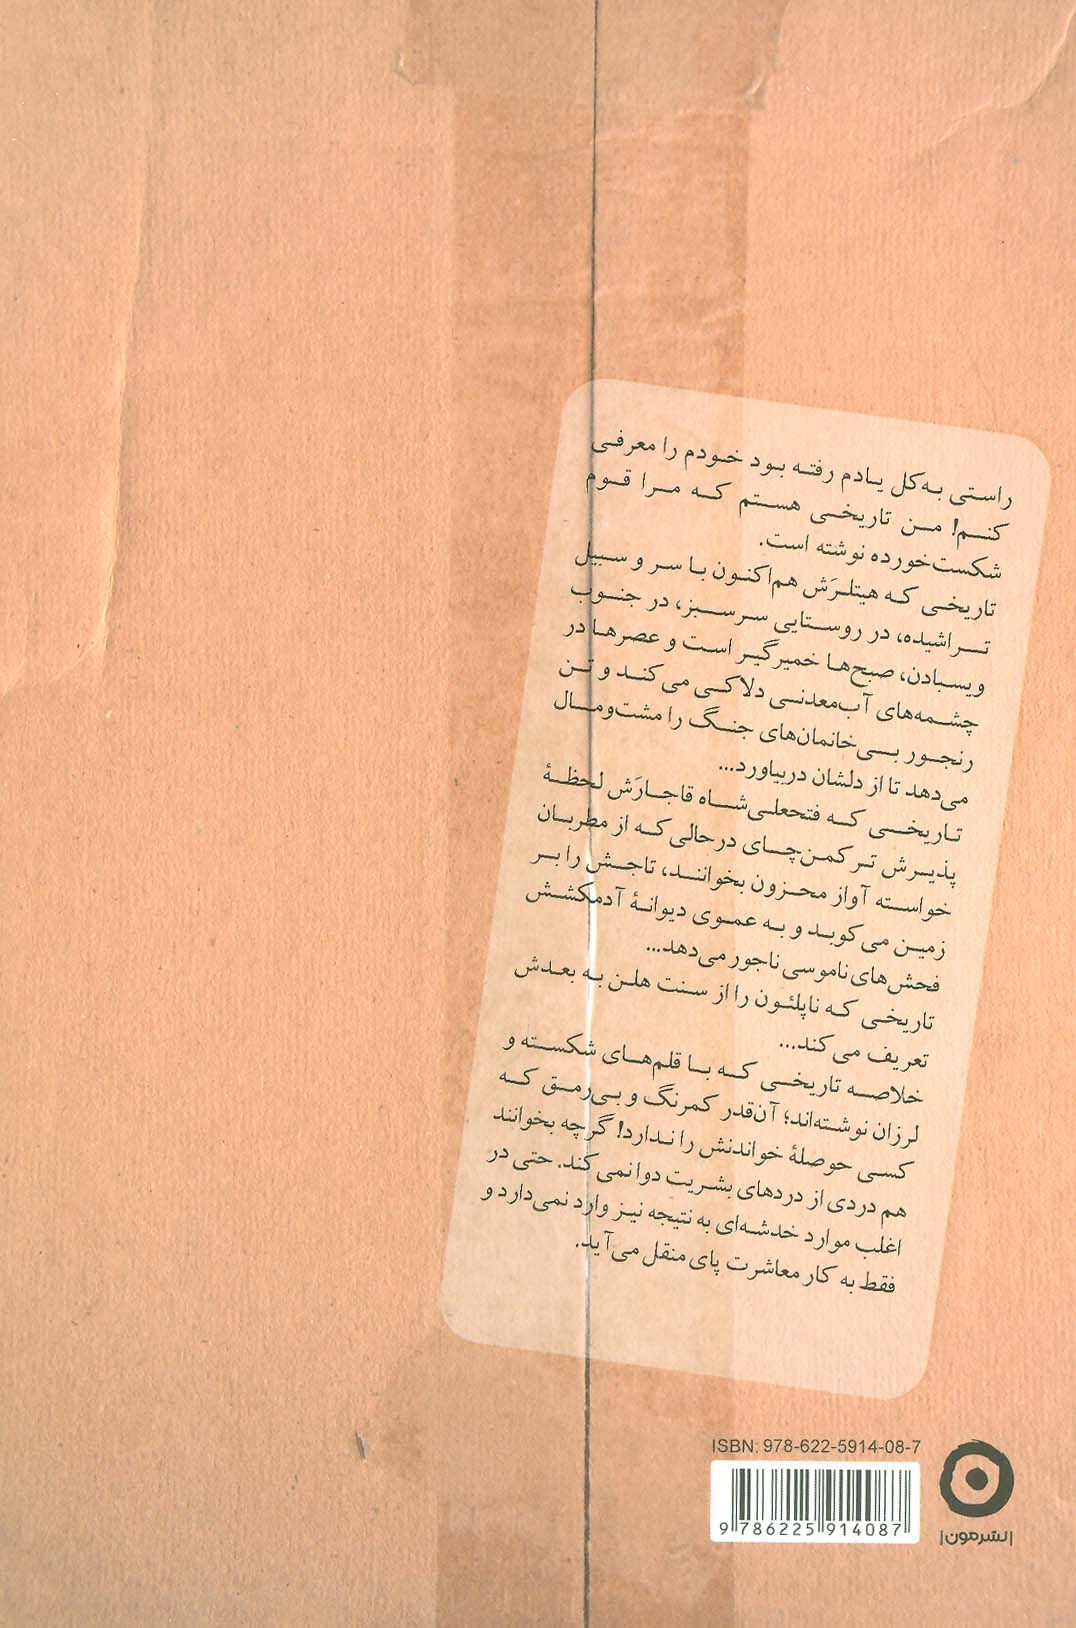 راستی به‌کل یادم رفته بود خودم را معرفی
کنم! من تاریخی هستم که مرا قوم
شکست‌خورده نوشته است.
تاریخی که هیتلرَش هم‌اکنون با سر و سبیل
تراشیده، در روستایی سرسبز، در جنوب
ویسبادن، صبح‌ها خمیرگیر است و عصرها در
چشمه‌های آب‌معدنی دلاکی می‌کند و تن
رنجور بی‌خانمان‌های جنگ را مشت‌ومال
می‌دهد تا از دلشان دربیاورد...
تاریخی که فتحعلی‌شاه قاجارَش لحظهٔ
پذیرش ترکمن‌چای درحالی‌که از مطربان
خواسته آواز محزون بخوانند، تاجش را بر
زمین می‌کوبد و به عموی دیوانهٔ آدمکشش
فحش‌های ناموسی ناجور می‌دهد...
تاریخی که ناپلئون را از سنت هلن به بعدش
تعریف می‌کند...
خلاصه تاریخی که با قلم‌های شکسته و
لرزان نوشته‌اند؛ آن‌قدر کمرنگ و بی‌رمق که
کسی حوصلهٔ خواندنش را ندارد! گرچه بخوانند
هم دردی از دردهای بشریت دوا نمی‌کند. حتی در
اغلب موارد خدشه‌ای به نتیجه نیز وارد نمی‌دارد و
فقط به کار معاشرت پای منقل می‌آید.
ISBN: 978-622-5914-08-7
9 786225 914087
|نشرمون|